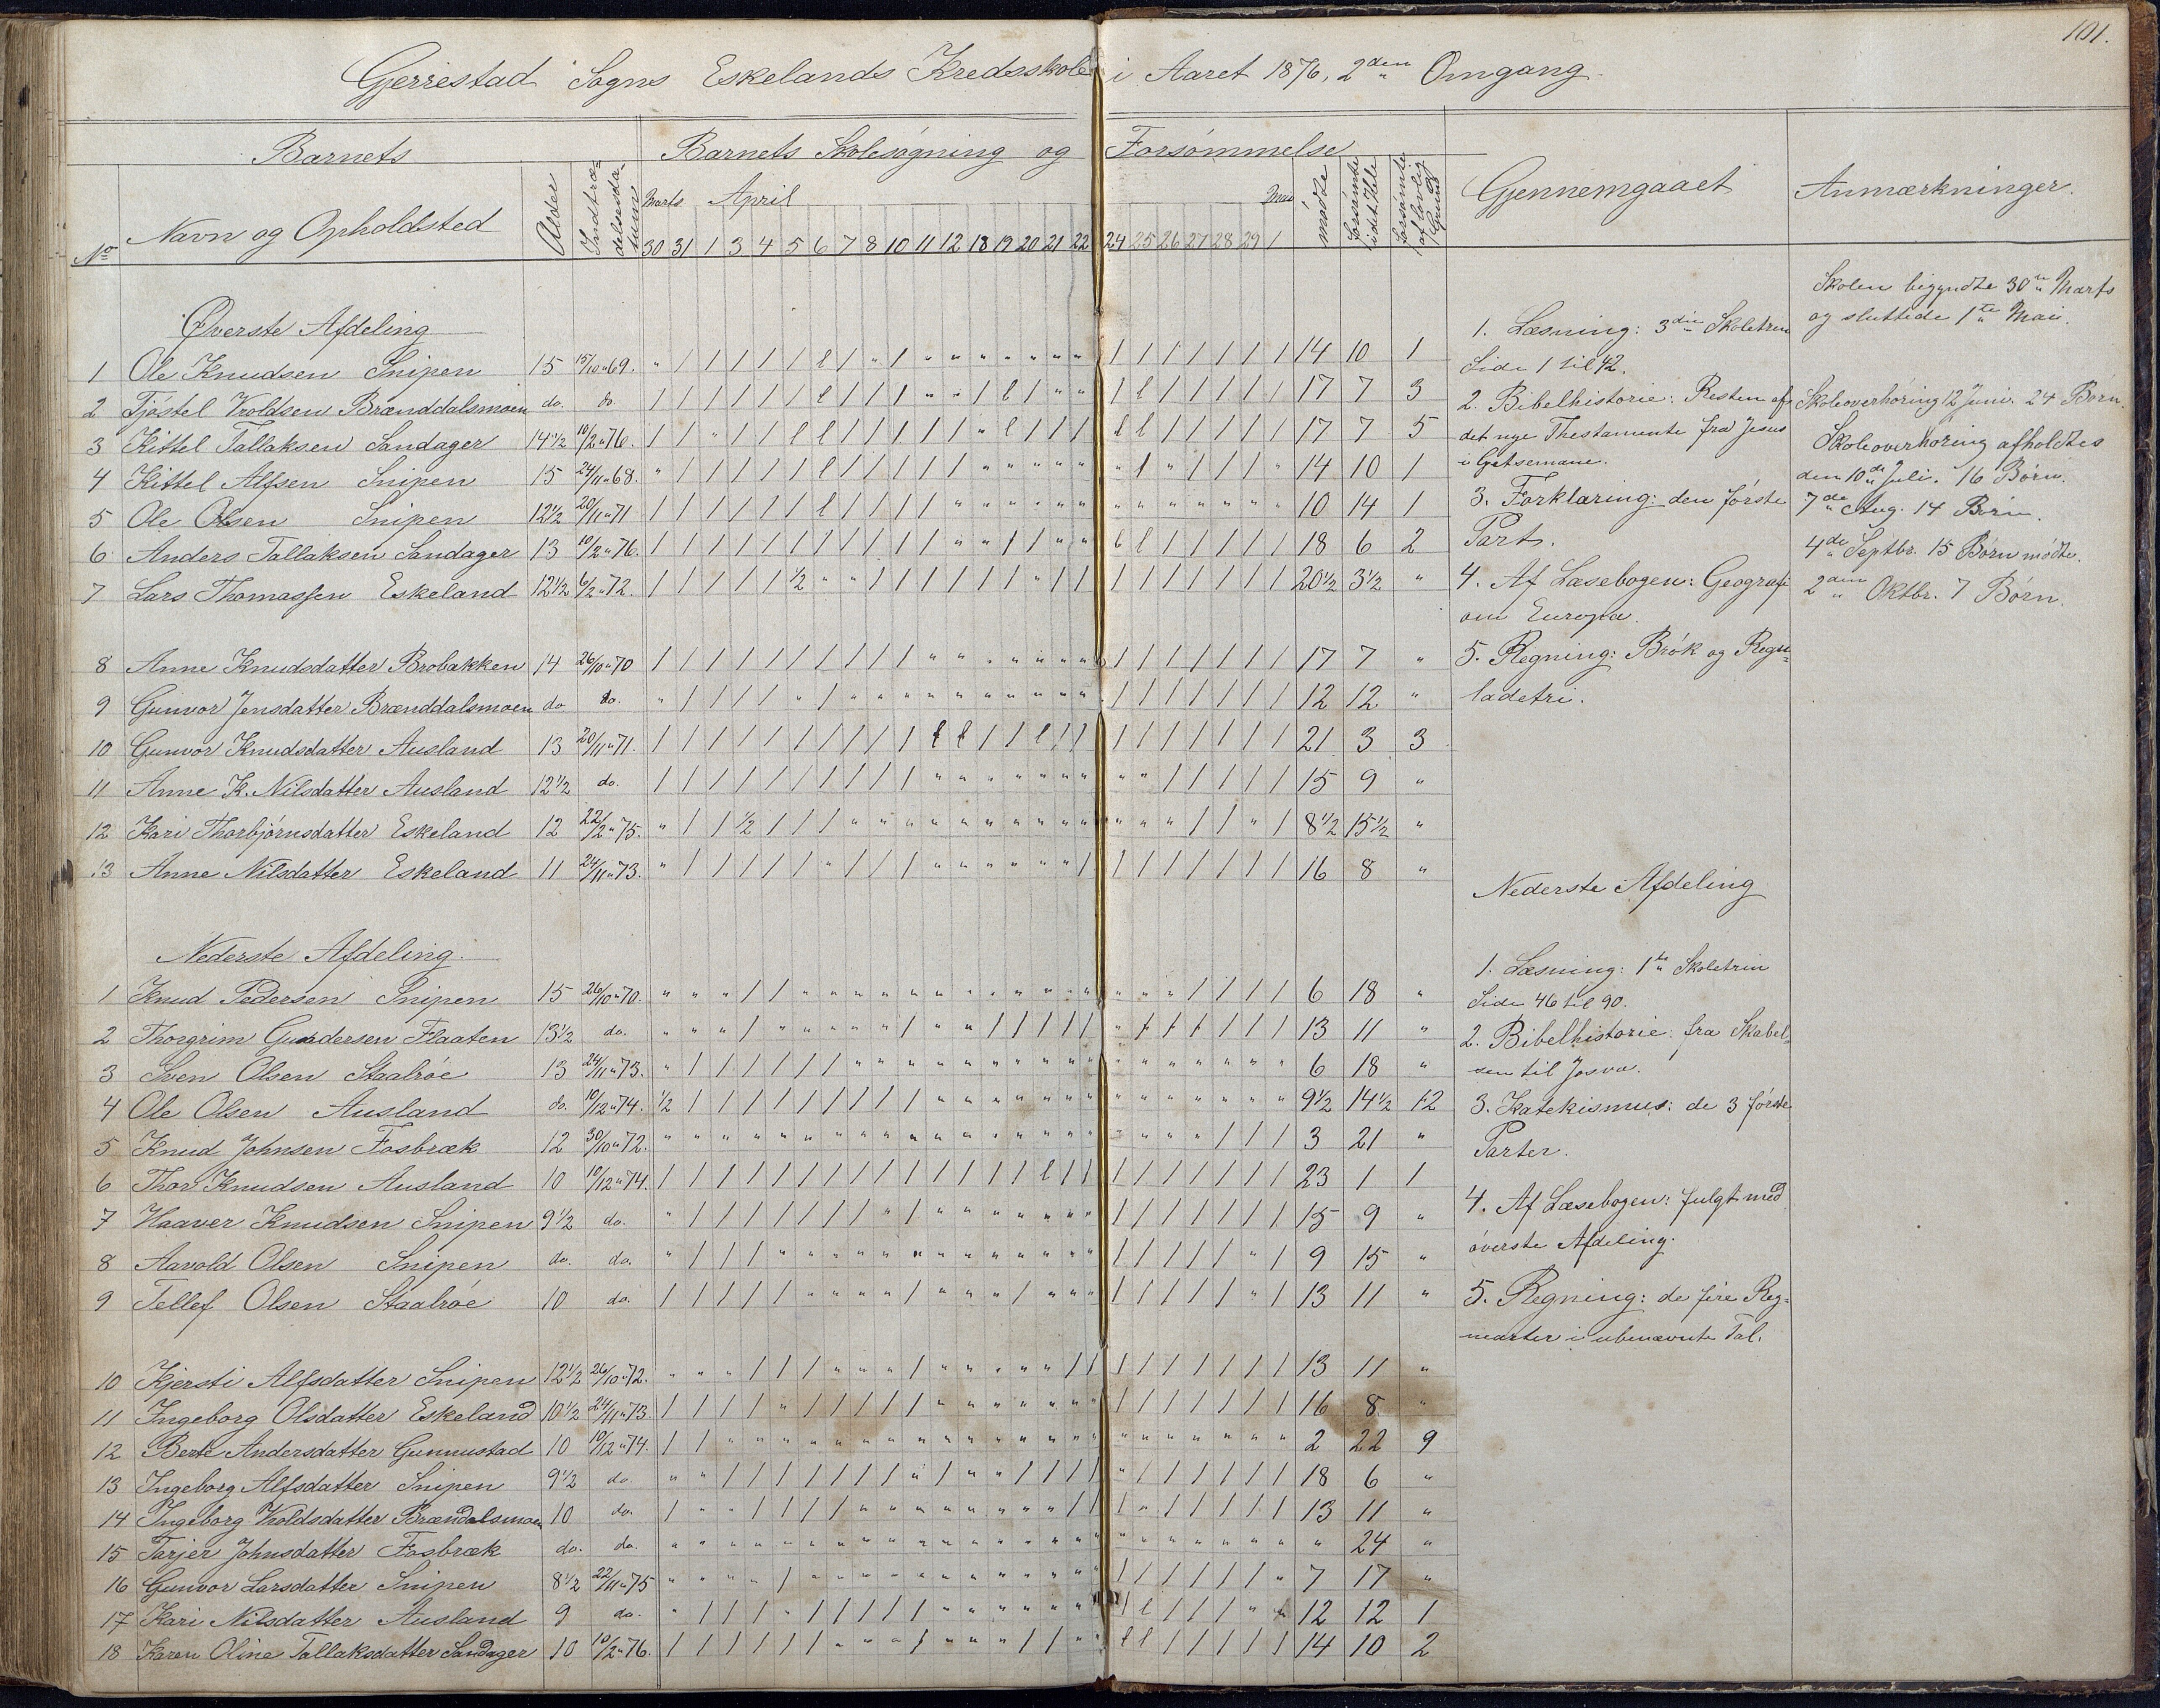 101.
Gjerrestad Sogns Eskelands Kredsskole i Aaret 1876, 2den Omgang.
Barnets
Barnets Skolesøgning og Forsømmelse
Gjennemgaaet
Anmærkninger.
No Navn og Opholdsted Alder Indtrædelsesdatum
Marts April Mai
30 31 1 3 4 5 6 7 8 10 11 12 18 19 20 21 22 24 25 26 27 28 29 1
mødte forsømte forsømte af lovlig Grund
Øverste Afdeling
1 Ole Knudsen Snipen 15 15/10 69. " / / / / / l / " / " " " " " " " / / / / / / / 14 10 1
2 Tjøstel Vroldsen Brænddalsmoen do. do. / / / / / / l / / / " " / l / " " / l / / / / / 17 7 3
3 Kittel Tallaksen Sandager 14 1/2 10/2 76. / / " / / l l / / / / / " l / / / l l / / / / / 17 7 5
4 Kittel Alfsen Snipen 15 24/11 68. " / / / / / l / / / / / " " " " " " / " / / / " 14 10 1
5 Ole Olsen Snipen 12 1/2 20/11 71 / / / / / / l / / / / " " " " " " " " " " " " " 10 14 1
6 Anders Tallaksen Sandager 13 10/2 76. / / / / / / / / / / / " " / / " " l l / / / / / 18 6 2
7 Lars Thomassen Eskeland 12 1/2 6/2 72. / / / / / 1/2 " " / / / / / / " / / / / / / / / / 20 1/2 3 1/2 "
8 Anne Knudsdatter Brobakken 14 26/10 70 / / / / / / / / / / " " " " " " " / / / / / / / 17 7 "
9 Gunvor Jensdatter Brænddalsmoen do. do. " / / / / " / " " " " " " " " " " / / / / / / / 12 12 "
10 Gunvor Knudsdatter Ausland 13 20/11 71. / / / / / / / / / / l l / / l / / / / / / / / / 21 3 3
11 Anne K. Nilsdatter Ausland 12 1/2 do. / / / / / / / / / / " " " " " " " " " / / / / / 15 9 "
12 Kari Thorbjørnsdatter Eskeland 12 22/2 75. " / / 1/2 / / / " " " " " " " " " " " " " / / " / 8 1/2 15 1/2 "
13 Anne Nilsdatter Eskeland 11 24/11 73. " / / / / / " / / / " " " " " " / / / / / / / / 16 8 "
Nederste Afdeling.
1 Knud Pedersen Snipen 15 26/10 70. " " " / / " " " " " " " " " " " " " " " / / / / 6 18 "
2 Thorgrim Gundersen Flaaten 13 1/2 do. " " " / " " " " " / " " / / / / / " / / / / / / 13 11 "
3 Sven Olsen Staalrøe 13 24/11 73. " / / / / / / " " " " " " " " " " " " " " " " " 6 18 "
4 Ole Olsen Ausland do. 10/12 74. 1/2 / / / / / / / / / " " " " " " " " " " " " " " 9 1/2 14 1/2 12
5 Knud Johnsen Fosbræk 12 30/10 72. " " " " " " " " " " " " " " " " " " " " " / / / 3 21 "
6 Thor Knudsen Ausland 10 10/12 74. / / / / / / / / / / / / / / l / / / / / / / / / 23 1 1
7 Haaver Knudsen Snipen 9 1/2 do. " / / / / / / / " / " " " " " " " / / / / / / / 15 9 "
8 Aavold Olsen Snipen do. do. " / / / " " " " " " " " " " " " " / / / / / " / 9 15 "
9 Tellef Olsen Staalrøe 10 do. / / / / / " " " " / " " " / " " " / / / / / " / 13 11 "
10 Kjersti Alfsdatter Snipen 12 1/2 26/10 72. " " " / / / " " " / " " " " " / / / / / / / / / 13 11 "
11 Ingeborg Olsdatter Eskeland 10 1/2 24/11 73. / / / / " / / / / / " " " " " " " / / / / / / / 16 8 "
12 Berte Andersdatter Gunnustad 10 10/12 74. / / " " " " " " " " " " " " " " " " " " " " " " 2 22 9
13 Ingeborg Alfsdatter Snipen 9 1/2 do. " " / / / / / / / " / " " / / / / " / / / / / / 18 6 "
14 Ingeborg Vroldsdatter Brændalsmoen 10 do. / " " / / / / " " " " " " " " / / / " / / / / / 13 11 "
15 Tarjer Johnsdatter Fosbræk do. do. " " " " " " " " " " " " " " " " " " " " " " " " " 24 "
16 Gunvor Larsdatter Snipen 8 1/2 22/11 75 " " " " / " " " " " " " " " " " " / / / / / / " 7 17 "
17 Kari Nilsdatter Ausland 9 do. " / / / " / / / / / " " " " " " " / l / / / " " 12 12 1
18 Karen Oline Tallaksdatter Sandager 10 10/2 76. / / / / / / " " " / " " " / / " " l l / / / / / 14 10 2
1. Læsning: 3die Skoletrin
Side 1 til 42.
2. Bibelhistorie: Resten af
det nye Thestamente fra Jesus
i Getsemane.
3. Forklaring: den første
Part.
4. Af Læsebogen: Geografi
om Europa.
5. Regning: Brøk og Regu-
ladetri.
Nederste Afdeling
1. Læsning: 1te Skoletrin
Side 46 til 90.
2. Bibelhistorie: fra Skabel-
sen til Josva.
3. Katekismus: de 3 første
Parter.
4. Af Læsebogen: fulgt med
øverste Afdeling.
5. Regning: de fire Reg-
nearter i ubenævnte Tal.
Skolen begyndte 30te Marts
og sluttede 1te Mai.
Skoleoverhøring 12 Juni. 24 Børn.
Skoleoverhøring afholdtes
den 10de Juli. 16 Børn.
7de Aug. 14 Børn.
4de Septbr. 15 Børn mødte.
2den Oktbr. 7 Børn.